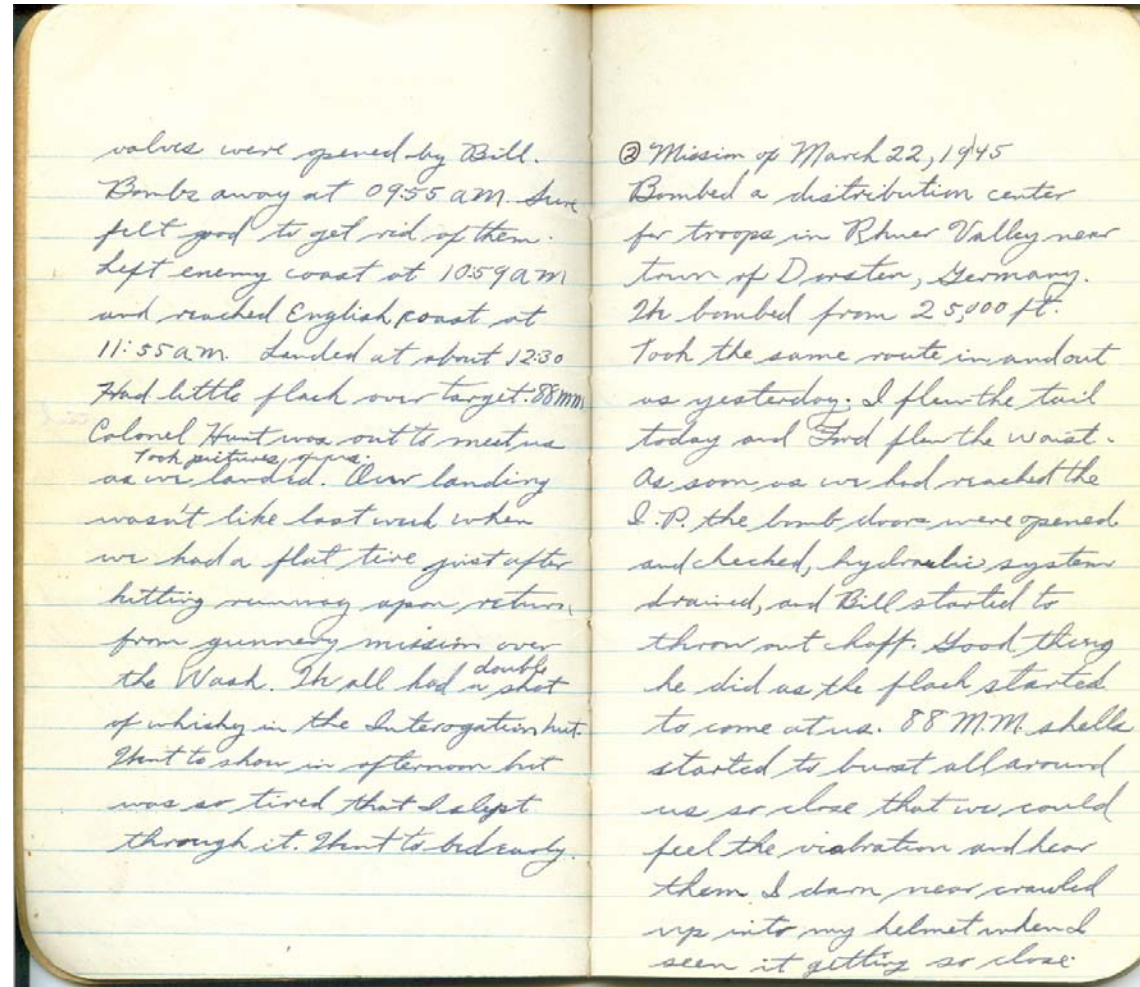 valves were opened by Bill.
Bombs away at 09:55 AM. Sure
felt good to get rid of them.
Left enemy coast at 10:59 AM
and reached English coast at
11:55 am. Landed at about 12:30
Had little flack over target. 88 mm
Colonel Hunt was out to meet us
Took pictures of us.
as we landed. Our landing
wasn't like last week when
we had a flat tire just after
hitting runway upon return
from gunnery mission over
the Wash. We all had a double shot
of whisky in the Interogation hut.
Went to show in afternoon but
was so tired that I slept
through it. Went to bed early.
② Mission of March 22, 1945
Bombed a distribution center
for troops in Rhuer Valley near
town of Dorsten, Germany.
We bombed from 25,000 ft.
Took the same route in and out
as yesterday. I flew the tail
today and Ford flew the waist.
As soon as we had reached the
I.P. the bomb doors were opened
and checked, hydraulic system
drained, and Bill started to
throw out chaff. Good thing
he did as the flack started
to come at us. 88 M.M. shells
started to burst all around
us so close that we could
feel the viabration and hear
them. I darn near crawled
up into my helmet when I
seen it getting so close.